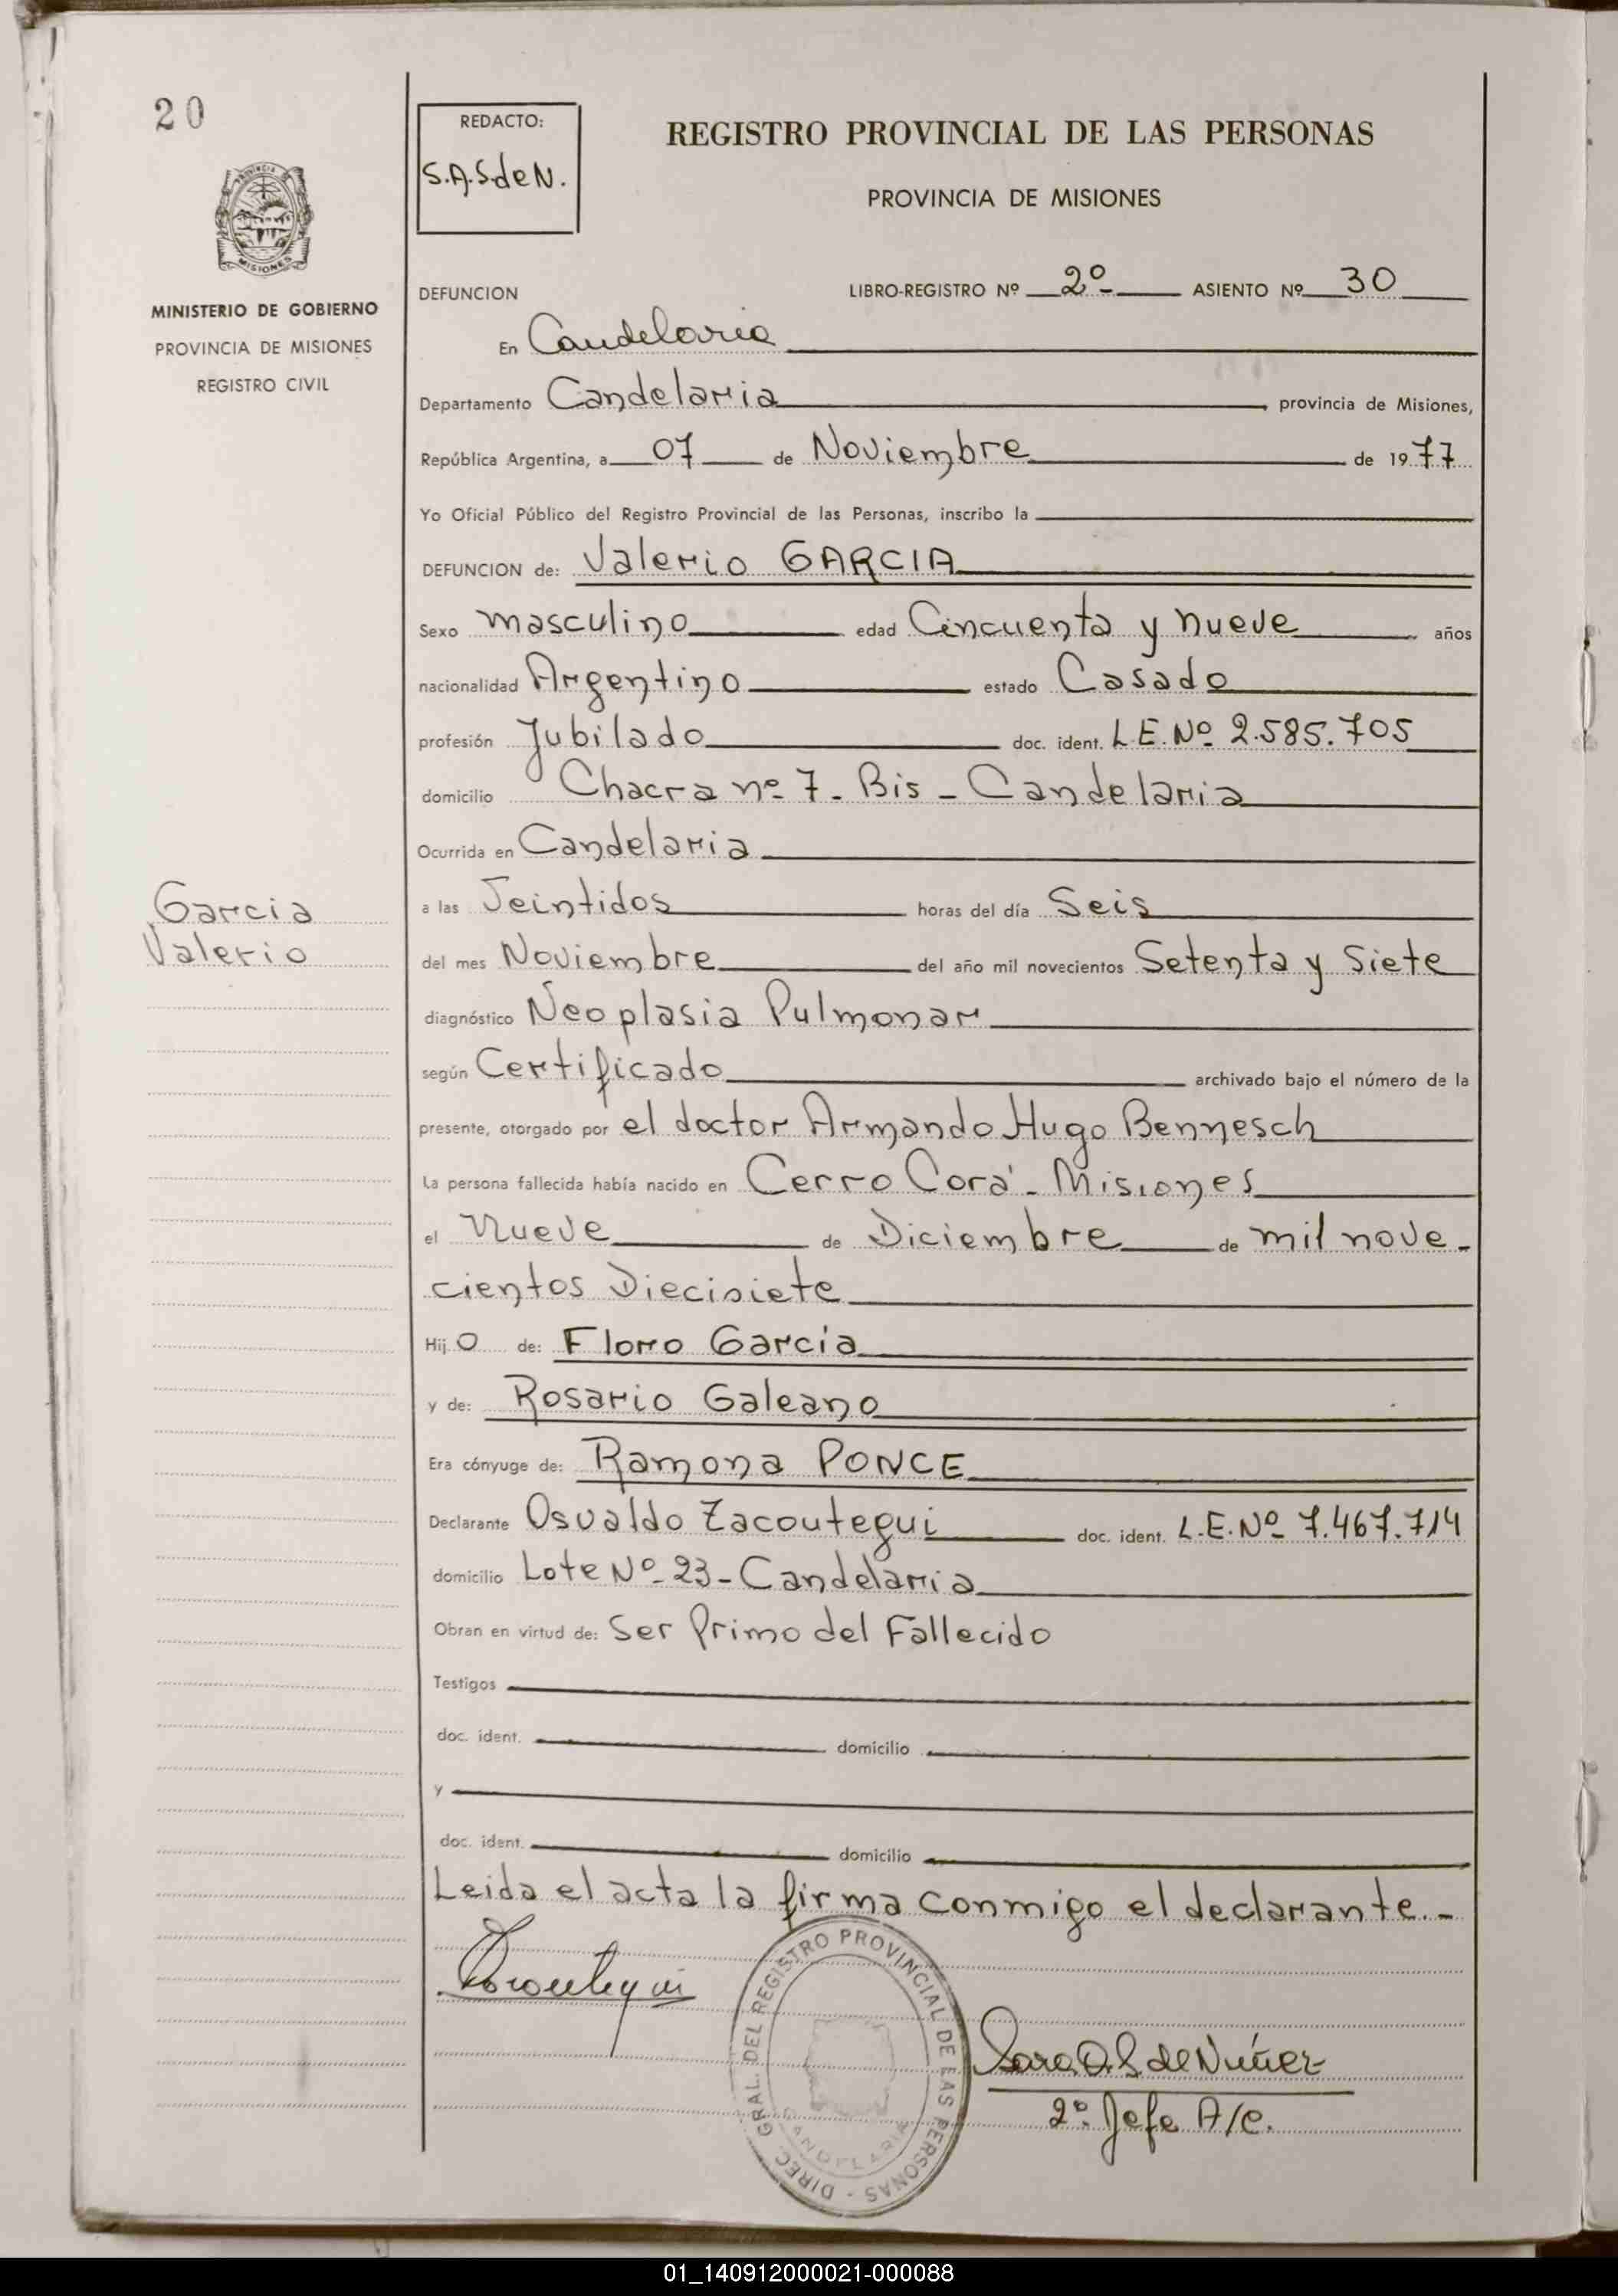 20
REDACTO:
S.A.S.deN.
REGISTRO PROVINCIAL DE LAS PERSONAS
PROVINCIA DE MISIONES
MISIONES
MINISTERIO DE GOBIERNO
PROVINCIA DE MISIONES
REGISTRO CIVIL
DEFUNCION LIBRO-REGISTRO Nº 2º ASIENTO Nº 30
En Candelaria
Departamento Candelaria provincia de Misiones,
República Argentina, a 07 de Noviembre de 1977
Yo Oficial Público del Registro Provincial de las Personas, inscribo la
DEFUNCION de: Valerio GARCIA
Sexo masculino edad Cincuenta y nueve años
nacionalidad Argentino estado Casado
profesión Jubilado doc. ident. L.E.Nº 2.585.705
domicilio Chacra nº 7 - Bis - Candelaria
Ocurrida en Candelaria
Garcia
Valerio
a las Veintidos horas del día Seis
del mes Noviembre del año mil novecientos Setenta y Siete
diagnóstico Neoplasia Pulmonar
según Certificado archivado bajo el número de la
presente, otorgado por el doctor Armando Hugo Bennesch
La persona fallecida había nacido en Cerro Corá - Misiones
el Nueve de Diciembre de mil nove-
cientos Diecisiete
Hijo de: Floro Garcia
y de: Rosario Galeano
Era cónyuge de: Ramona PONCE
Declarante Osvaldo Zacoutegui doc. ident. L.E.Nº 7.467.714
domicilio Lote Nº 23 - Candelaria
Obran en virtud de: Ser Primo del Fallecido
Testigos
doc. ident. domicilio
y
doc. ident. domicilio
Leida el acta la firma conmigo el declarante.-
Zacoutegui
DIREC. GRAL. DEL REGISTRO PROVINCIAL DE LAS PERSONAS -
CANDELARIA
Sara A. S. de Núñez
2º Jefe A/C.
01_140912000021-000088